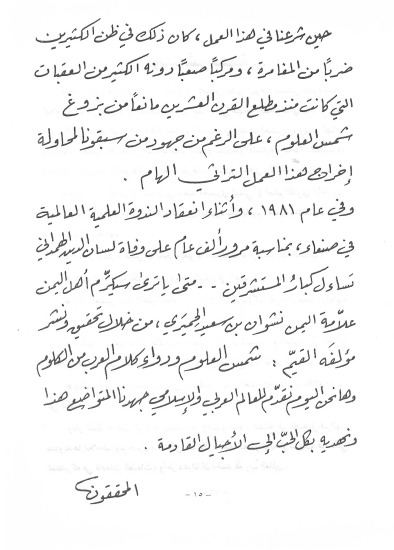 حين شرعنا في هذا العمل ، كان ذلك في ظن الكثيرين
ضرباً من المغامرة ، ومركباً صعباً دونه الكثير من العقبات
التي كانت منذ مطلع القرن العشرين مانعاً من بزوغ
شمس العلوم ، على الرغم من جهود من سبقونا لمحاولة
إخراج هذا العمل التراثي الهام .
وفي عام ١٩٨١ ، وأثناء انعقاد الندوة العلمية العالمية
في صنعاء ، بمناسبة مرور ألف عام على وفاة لسان اليمن الهمداني
تساءل كبارُ المستشرقين - - متى يا ترى سيكرِّم أهل اليمن
علاّمة اليمن نشوان بن سعيد الحميَري ، من خلال تحقيق ونشر
مؤلفه القيِّم : شمس العلوم ودواء كلام العرب من الكلوم
وها نحن اليوم نقدّم للعالم العربي والإسلامي جهدنا المتواضع هذا
ونهديه بكل الحبّ إلى الأجيال القادمة .
المحققون
- ١٥ -